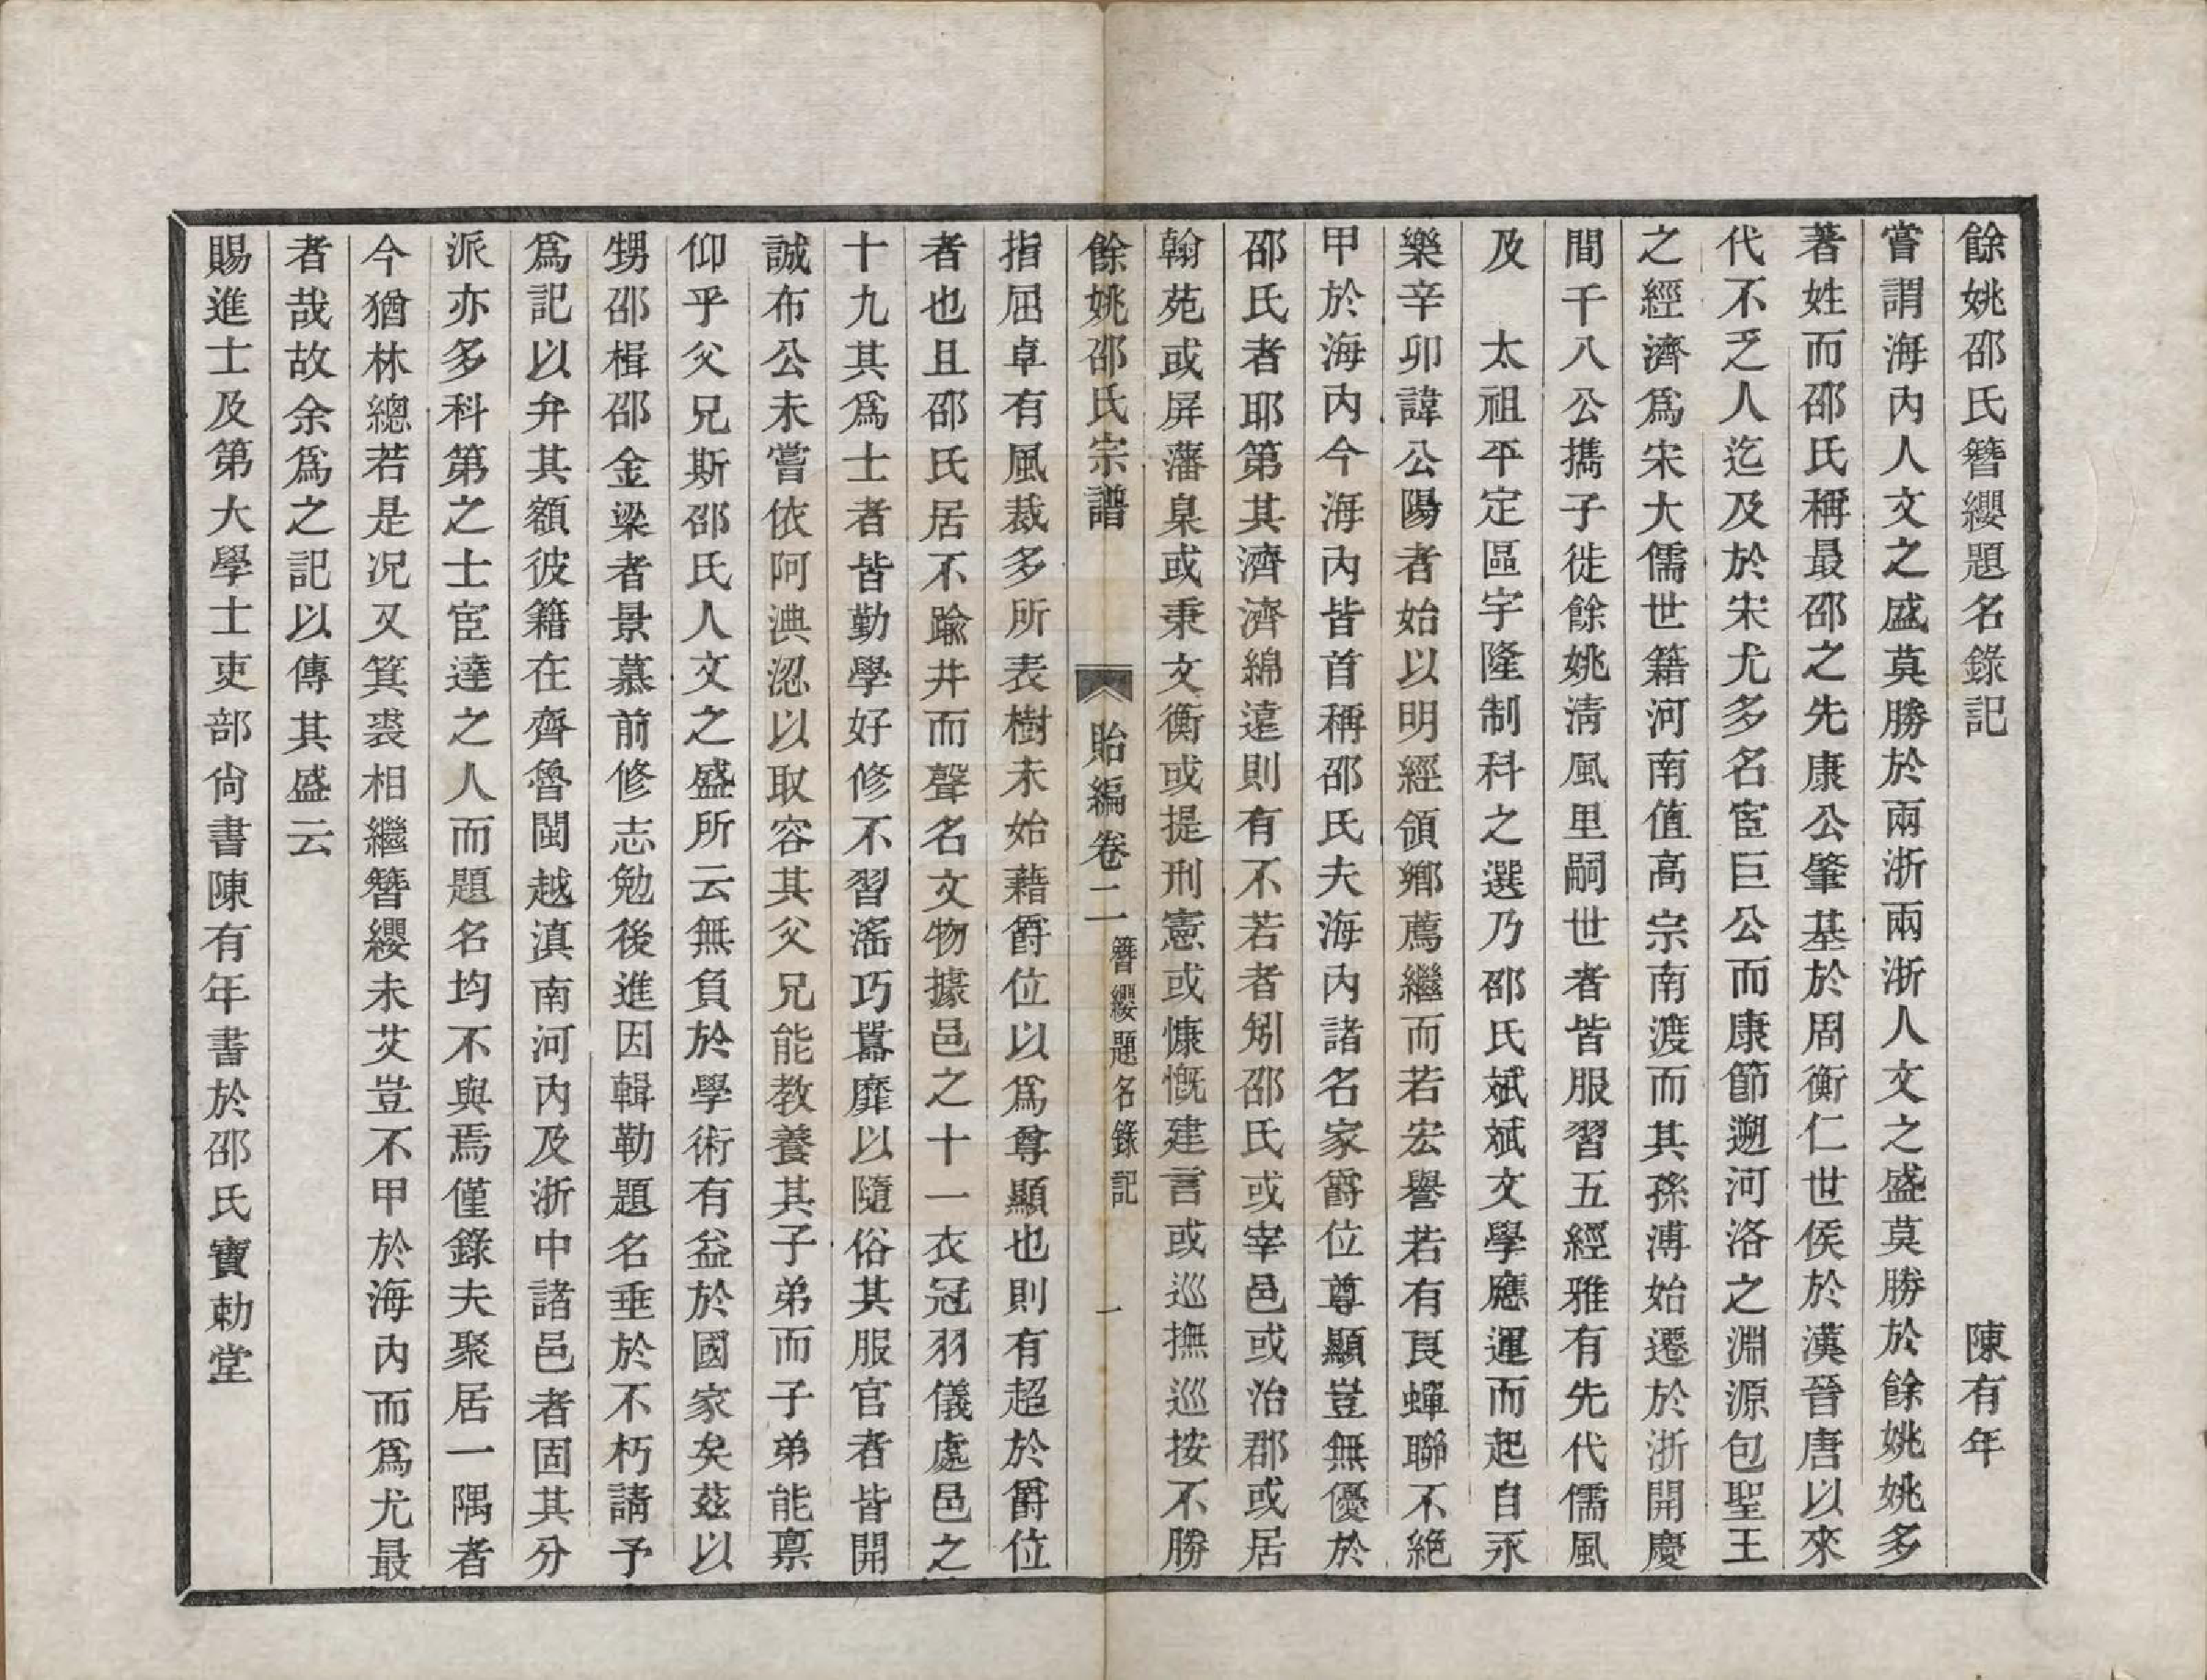 餘姚邵氏簪纓題名錄記　陳有年
嘗謂海內人文之盛莫勝於兩浙兩浙人文之盛莫勝於餘姚姚多
著姓而邵氏稱最邵之先康公肇基於周衡仁世侯於漢晉唐以來
代不乏人迄及於宋尤多名宦巨公而康節遡河洛之淵源包聖王
之經濟爲宋大儒世籍河南值高宗南渡而其孫溥始遷於浙開慶
間千八公攜子徙餘姚淸風里嗣世者皆服習五經雅有先代儒風
及　太祖平定區宇隆制科之選乃邵氏斌斌文學應運而起自永
樂辛卯諱公陽者始以明經領鄉薦繼而若宏譽若有良蟬聯不絕
甲於海內今海內皆首稱邵氏夫海內諸名家爵位尊顯豈無優於
邵氏者耶第其濟濟綿遠則有不若者矧邵氏或宰邑或治郡或居
翰苑或屏藩臬或秉文衡或提刑憲或慷慨建言或巡撫巡按不勝
餘姚邵氏宗譜　貽編卷二　簪纓題名錄記　一
指屈卓有風裁多所表樹未始藉爵位以爲尊顯也則有超於爵位
者也且邵氏居不踰井而聲名文物據邑之十一衣冠羽儀處邑之
十九其爲士者皆勤學好修不習滛巧嚣靡以隨俗其服官者皆開
誠布公未嘗依阿淟涊以取容其父兄能教養其子弟而子弟能禀
仰乎父兄斯邵氏人文之盛所云無負於學術有益於國家矣茲以
甥邵楫邵金梁者景慕前修志勉後進因輯勒題名垂於不朽請予
爲記以弁其額彼籍在齊魯閩越滇南河內及浙中諸邑者固其分
派亦多科第之士宦達之人而題名均不與焉僅錄夫聚居一隅者
今猶林總若是况又箕裘相繼簪纓未艾豈不甲於海內而爲尤最
者哉故余爲之記以傳其盛云
賜進士及第大學士吏部尙書陳有年書於邵氏寶勅堂